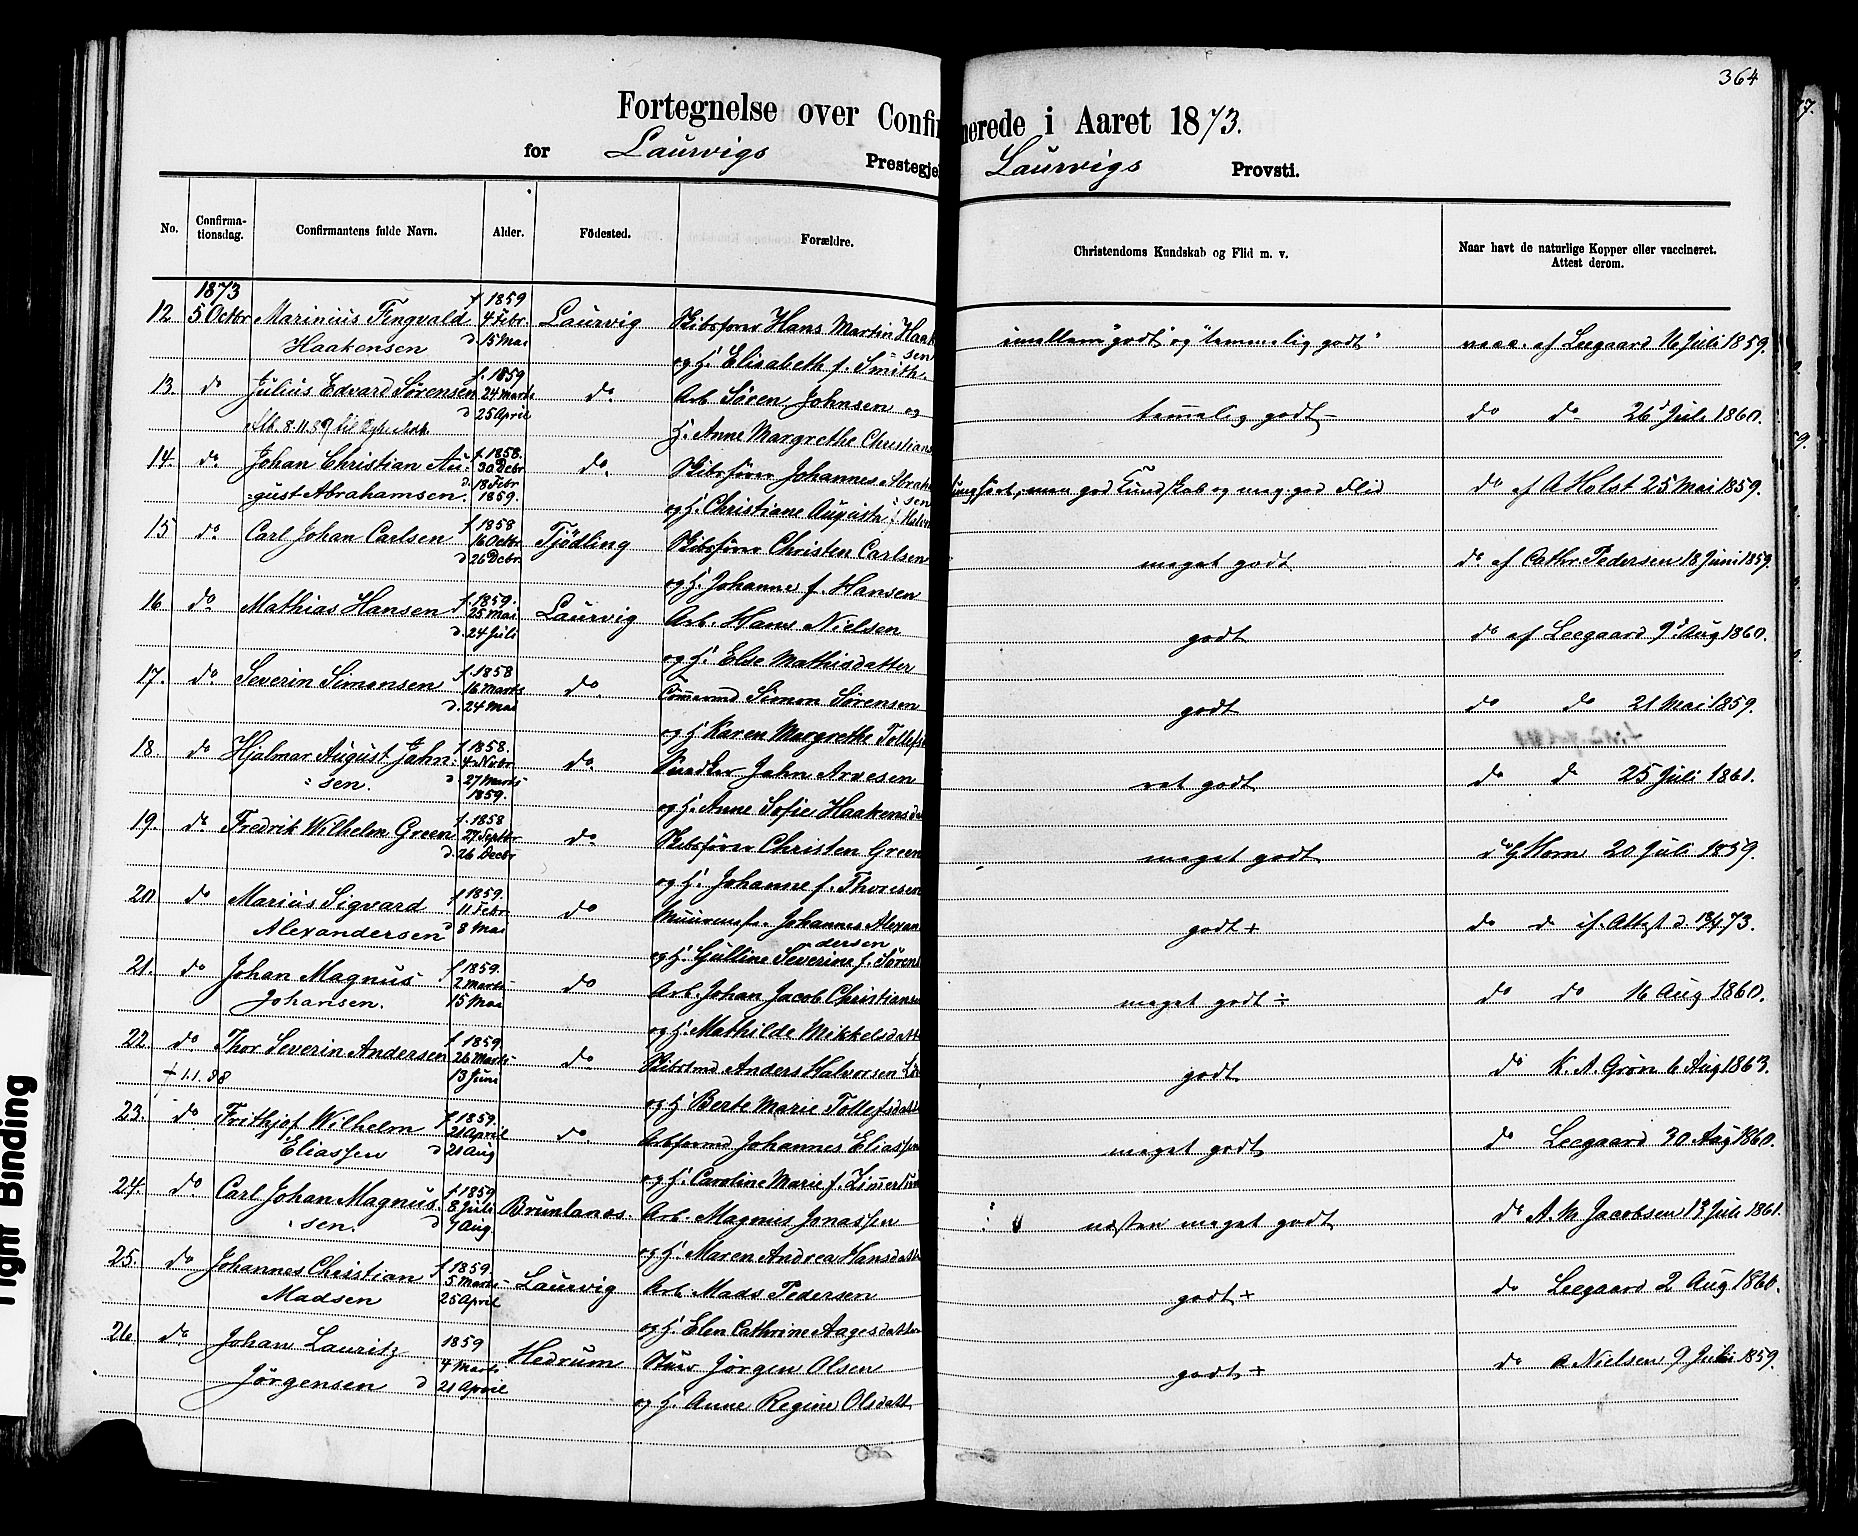 364
Fortegnelse over Confir merede i Aaret 1873.
for Laurvigs Prestegje Laurvigs Provsti.
No. Confirma-tionsdag. Confirmantens fulde Navn. Alder. Födested. Forældre. Christendoms Kundskab og Flid m. v. Naar havt de naturlige Kopper eller vaccineret. Attest derom.
1873 f. 1859
12 5 Octbr Marinius Tingvald 4 Febr. Laurvig Skibsfører Hans Martin Haak imellem "godt" og "temmelig godt" vacc. af Leegaard 16 Juli 1859.
Haakensen d. 15 Mai sen
og H. Elisabeth f. Smith.
13. do Julius Edvard Sørensen f. 1859 24 Marts do. Arb. Søren Johnsen og temelig godt - do do 26 Juli 1860.
d 25 April
8.11.89 til H. Anne Margrethe Christians
14. do. Johan Christian Au- f. 1858. 30 Decbr do. Skibsfører Johannes Abraha men god Kundskab og meg. god Flid do af A Holst 25 Mai 1859.
gust Abrahamsen. d. 18 Febr 1859. sen
og H. Christiane Augusta
15 do. Carl Johan Carlsen f 1858 16 Octbr Tjödling Skibsfører Christen Carlsen meget godt do. af Cathr. Pedersen 18 Juni 1859.
d 26 Decbr. og H. Johanne f. Hansen
16 do. Mathias Hansen f. 1859. 25 Mai Laurvig Arb. Hans Nielsen godt do af Leegaard 9 Aug 1860.
d. 24 Juli og H. Else Mathisdatter
17. do. Severin Simonsen f. 1858 16 Marts do. Tømermd Simon Sørensen godt do do 21 Mai 1859.
d. 24 Mai og H Karen Margrethe Tollefs
18. do Hjalmar August John- f. 1858. 4 Novbr do. Snedker John Arvesen ret godt do do 25 Juli 1861.
sen. d. 27 Marts 1859. og H. Anne Sofie Haakensda
19. do Fredrik Wilhelm Green f. 1858 27 Septbr do Skibsfører Christen Green meget godt do G Horn 20 Juli 1859.
d. 26 Decbr og H. Johanne f. Thorsen
20 do Marius Sigvard f 1859. 11 Febr do Johannes Alexan godt + do d if. Attest d. 73.
Alexandersen d 8 Mai dersen
og H. Gulline Severine f. Sørens
21. do Johan Magnus f. 1859. 2 Marts do Arb. Johan Jacob Christianse meget godt ÷ do do 16 Aug 1860.
Johansen. 15 Mai og H. Mathilde Mikkelsdatt
22. do Thor Severin Andersen f. 1859. 26 Marts do Skibstmd Anders Halvorsen godt do K. A. Grøn 6 Aug 1863.
† 1.1.88 13 Juni og H Berte Marie Tollefsdatt
23. do Frithjof Wilhelm f. 1859. 21 April do Johannes Eliassen meget godt do Leegaard 30 Aug 1860.
Eliassen d 21 Aug og H. Caroline Marie f.
24. do Carl Johan Magnus- f. 1859 8 Juli Brunlanes. Arb. Magnus Jonassen næsten meget godt do A. M Jacobsen 13 Juli 1861.
sen. d 7 Aug. og H. Maren Andrea Hansdatt
25. do Johannes Christian f 1859. 5 Marts Laurvig Arb. Mads Pedersen godt + do Leegaard 2 Aug 1860.
Madsen 25 April og H. Elen Cathrine Aagesdatte
26 do Johan Lauritz 1859 4 Marts Hedrum Jørgen Olsen godt + do A Nielsen 9 Juli 1859.
Jørgensen d 21 April og H. Anne Regine Olsdatt
Tight Binding